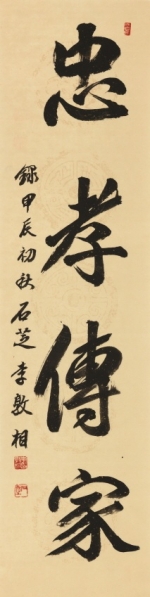 忠孝傳家
録甲辰初秋石芝李敦相